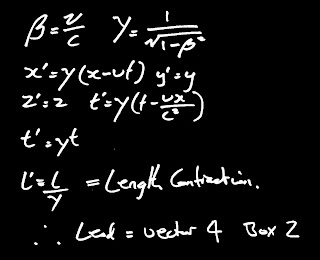 β = v/c γ = 1/√(1-β²)
x' = γ(x-ut) y' = y
z' = z t' = γ(t - ux/c²)
t' = γt
L' = L/γ = Length Contraction.
∴ Lead = vector 4 Box 2